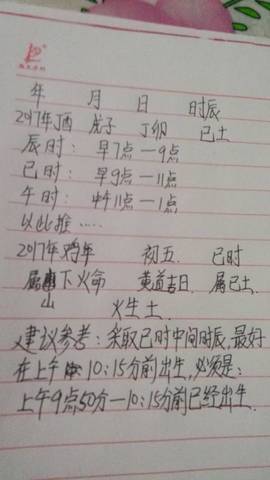 年 月 日 时辰
2017年丁酉 虎子 丁卯 巳土
辰时：早7点一9点
巳时：早9点一11点
午时：中午11点一1点
以此推……
2017年鸡年 初五 巳时
属山下火命 黄道吉日 属巳土
火生土
建议参考：采取巳时中间时辰，最好
在上午10:15分前出生，必须是：
上午9点50分一10:15分前已经出生